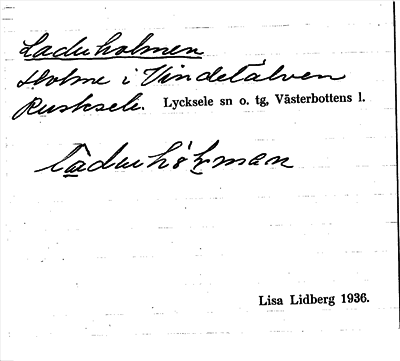 Laduholmen
Holme i Vindelälven
Rusksele. Lycksele sn o. tg, Västerbottens l.
Lisa Lidberg 1936.